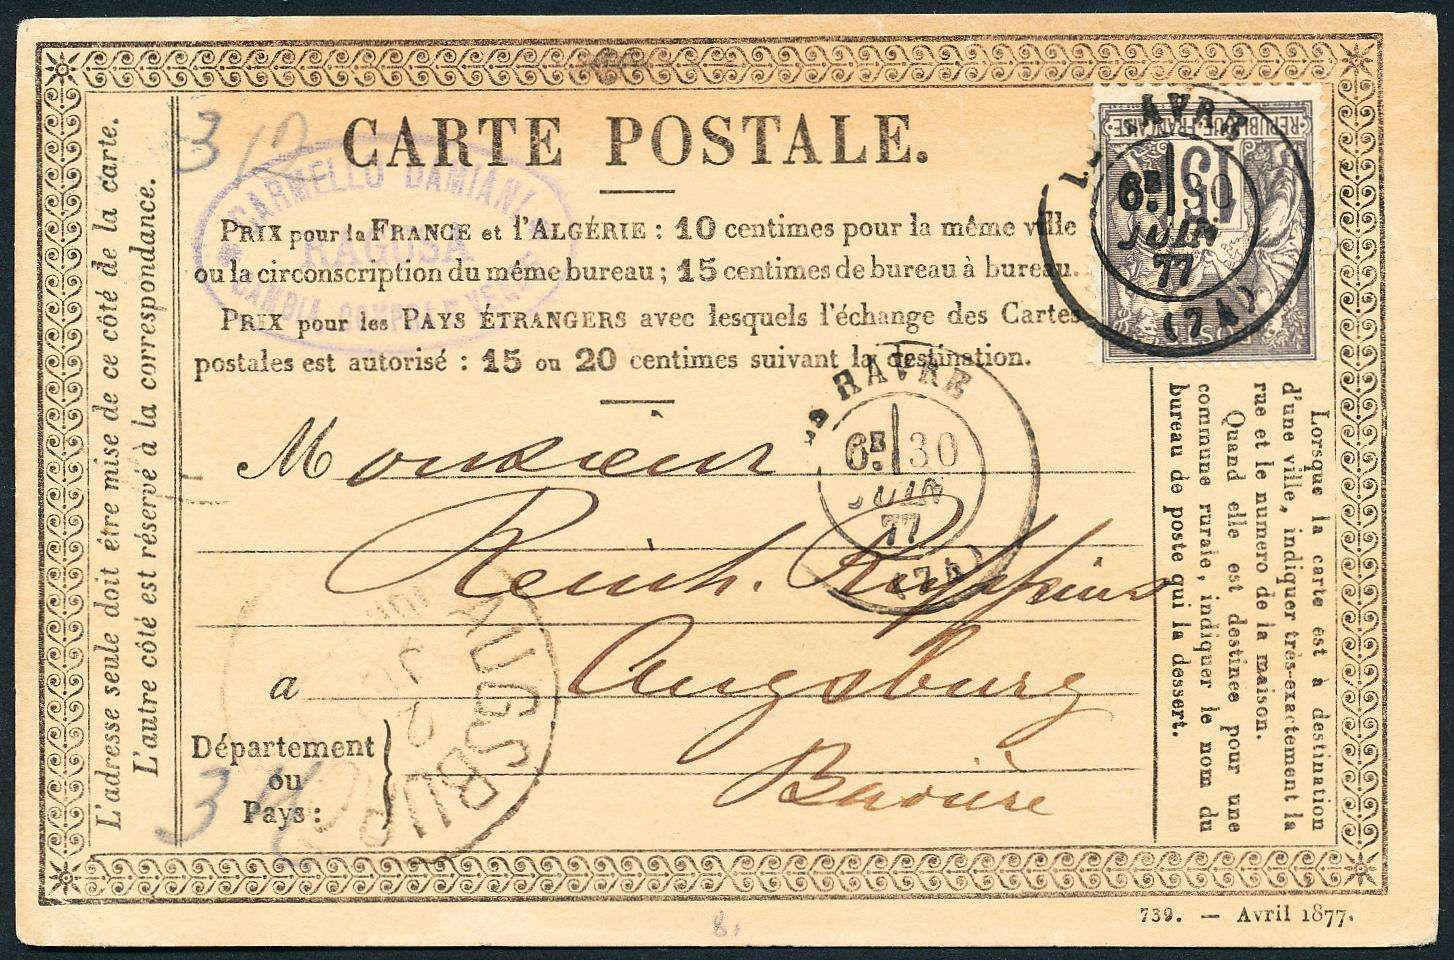 CARTE POSTALE.
3 12
CARMELLO DAMIANI
RAGUSA
CAMBIA COMPRA E VENDE
PRIX pour la FRANCE et l'ALGÉRIE : 10 centimes pour la même ville
ou la circonscription du même bureau ; 15 centimes de bureau à bureau.
PRIX pour les PAYS ÉTRANGERS avec lesquels l'échange des Cartes
postales est autorisé : 15 ou 20 centimes suivant la destination.
REPUBLIQUE FRANCAISE
15
LE HAVRE
6E 30
JUIN
77
(74)
LE HAVRE
6E 30
JUIN
77
(74)
Monsieur
Reinh. Ruppius
a Augsburg
Département
ou
Pays :
Bavière
AUGSBURG
3
L'adresse seule doit être mise de ce côté de la carte.
L'autre côté est réservé à la correspondance.
Lorsque la carte est à destination
d'une ville, indiquer très-exactement la
rue et le numero de la maison.
Quand elle est destinée pour une
commune rurale, indiquer le nom du
bureau de poste qui la dessert.
739. — Avril 1877.
8.